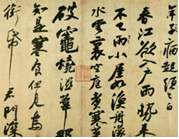 年子病起已白
春江欲入戶雨勢來
不已小屋如漁舟濛濛
水雲裏空庖煮寒菜
破竈燒濕葦那
知是寒食但見烏
銜帋君門深